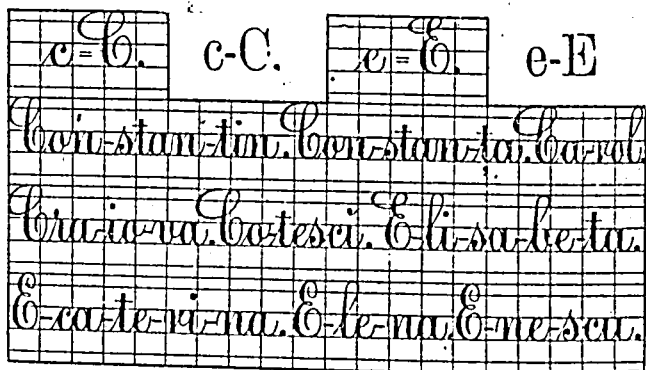 c=C. c-C. e=E. e-E
Con-stan-tin. Con-stan-ta. Ca-rol.
Cra-io-va. Co-tesci. E-li-sa-be-ta.
E-ca-te-ri-na. E-le-na. E-ne-scu.